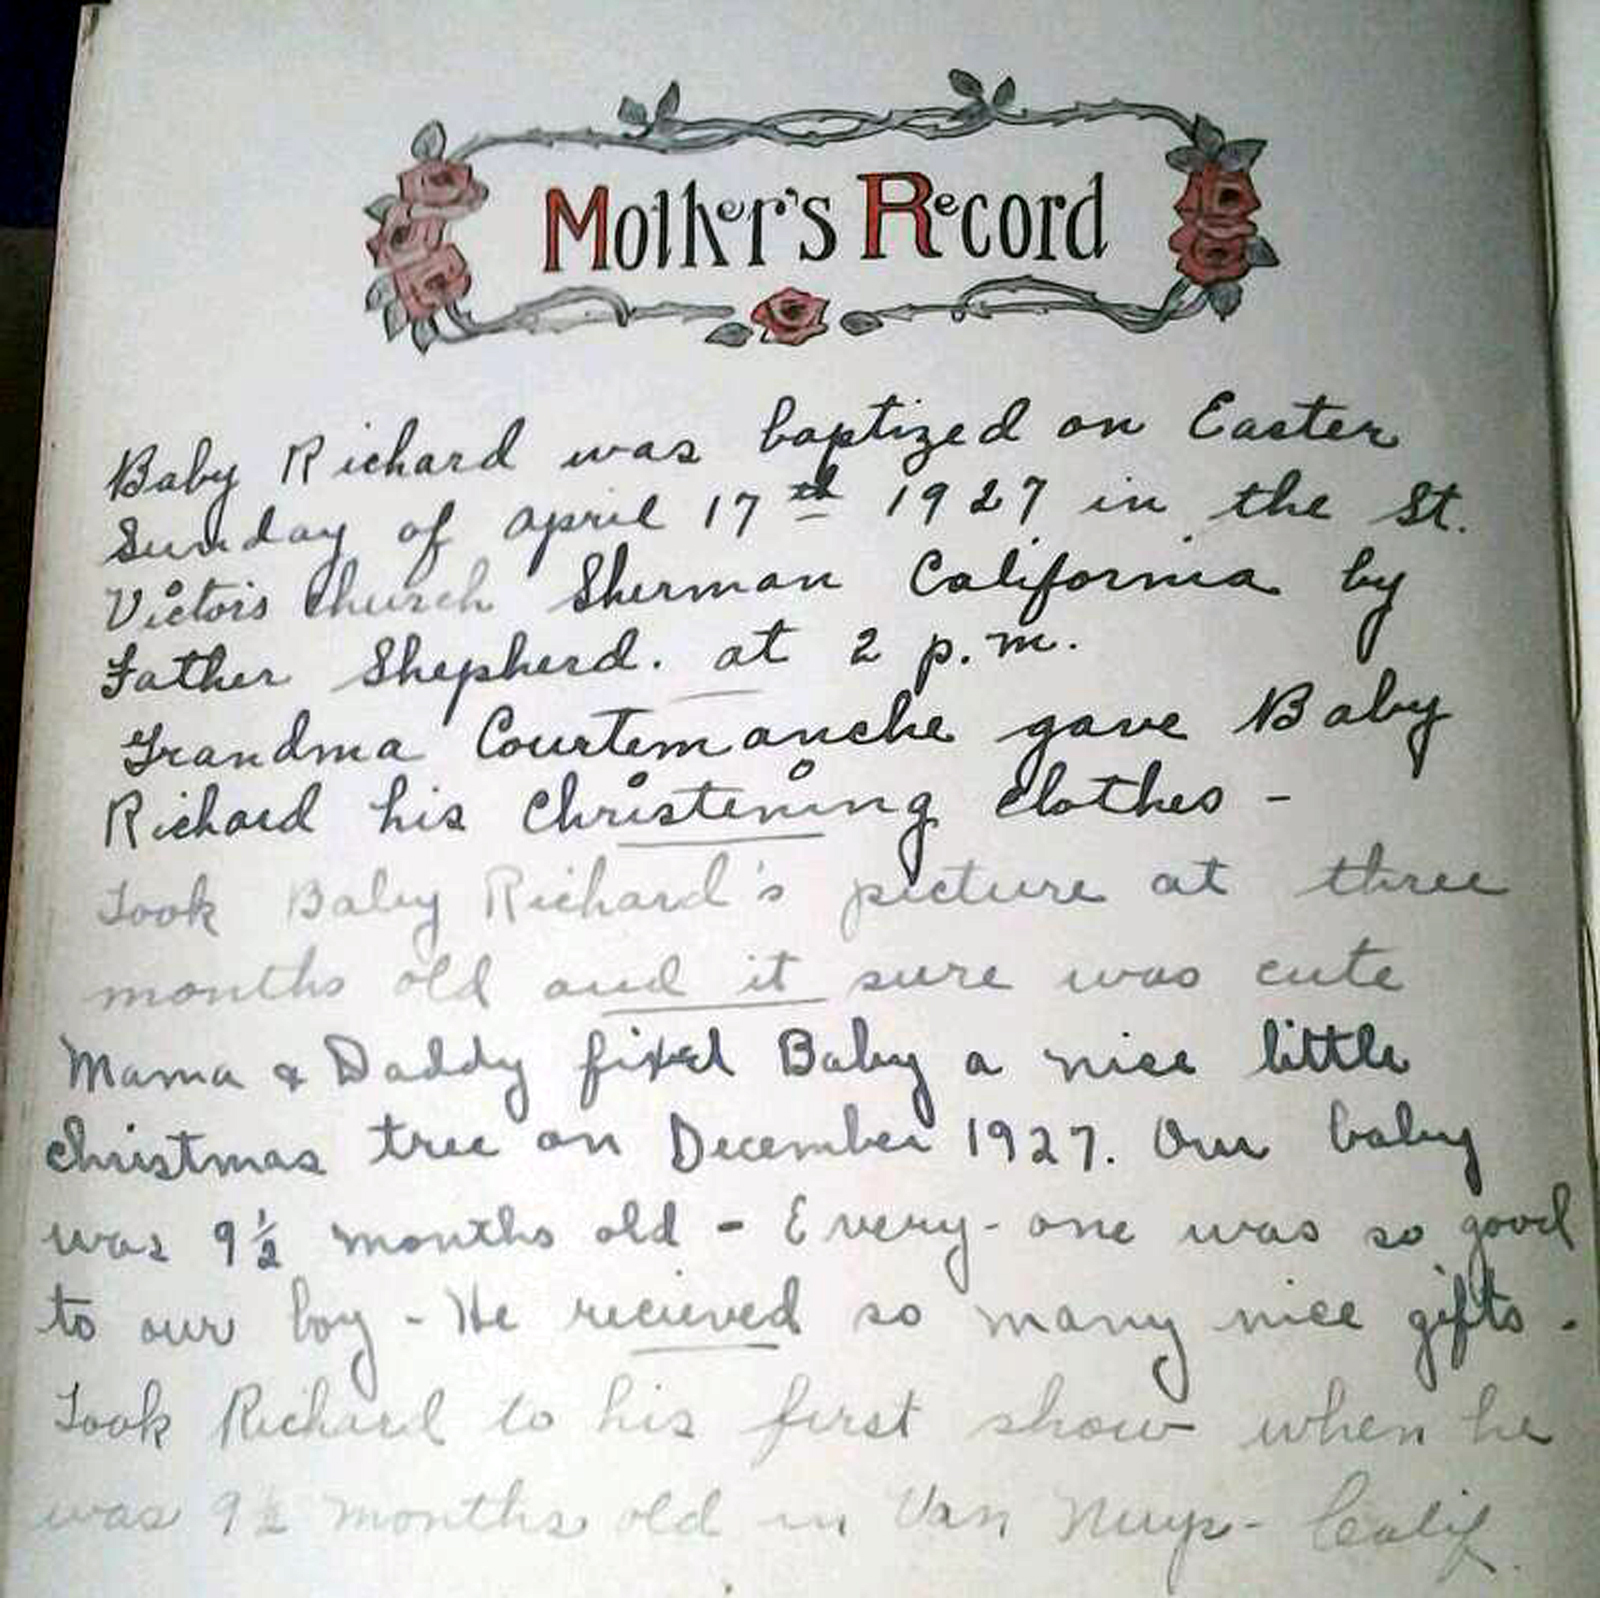 Mother's Record
Baby Richard was baptized on Easter
Sunday of april 17th 1927 in the St.
Victor's Church Sherman California by
Father Shepherd. at 2 p.m.
Grandma Courtemanche gave Baby
Richard his Christening Clothes -
Took Baby Richard's picture at three
months old and it sure was cute
Mama & Daddy fixed Baby a nice little
Christmas tree on December 1927. Our baby
was 9½ months old - Every-one was so good
to our boy - He recieved so many nice gifts.
Took Richard to his first show when he
was 9½ months old in Van Nuys - Calif.